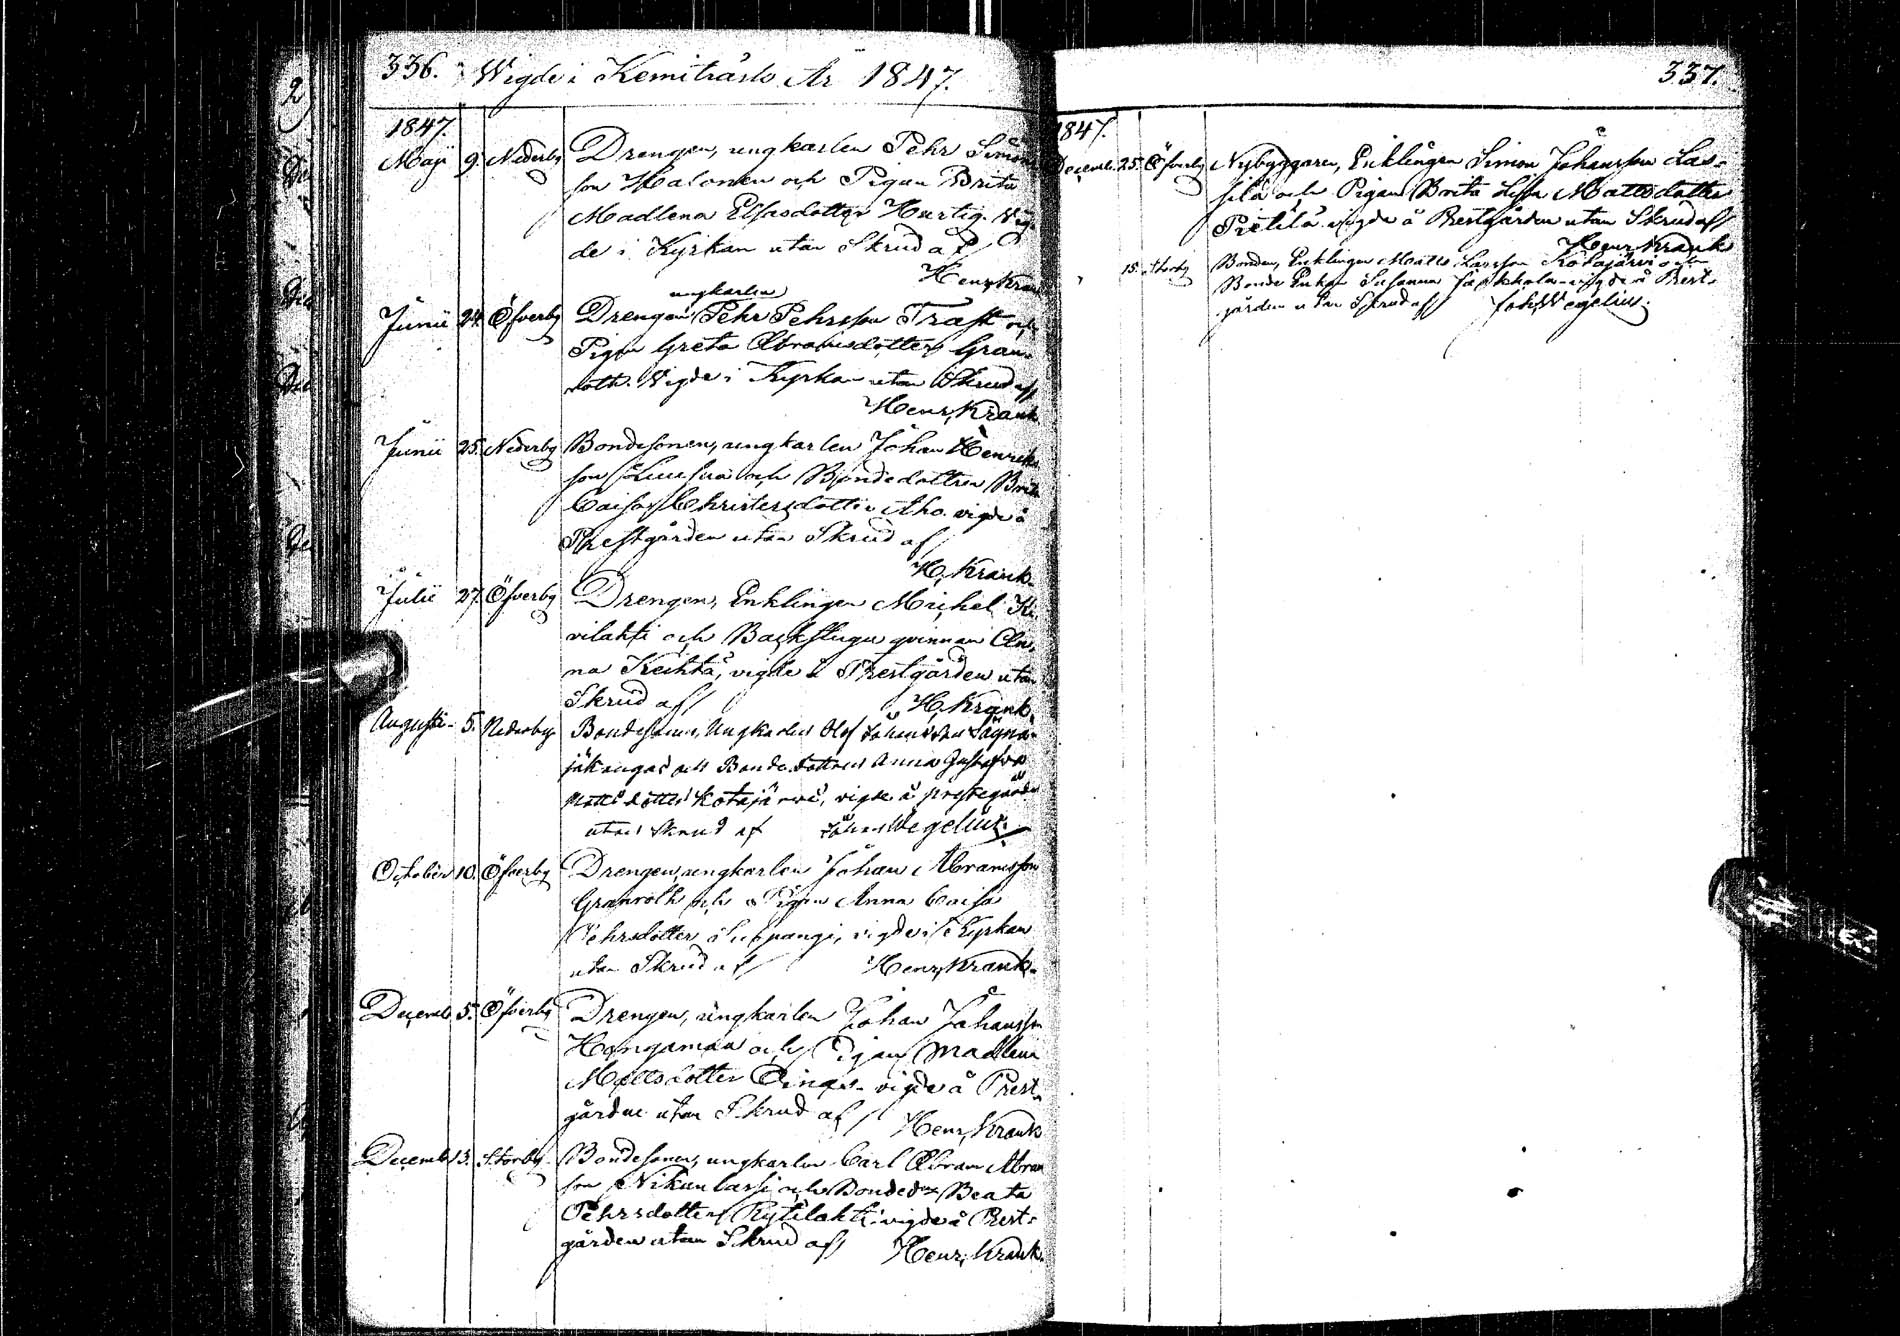 336. Wigde i Kemiträsk År 1847.
1847.
Maji 9. Nederby Drengen, ungkarlen Pehr Simons
son Halonen och Pigan Brita
Madlena Eliasdotter Hurtig. Vig-
de i Kyrkan utan Skrud af
Henr. Krank
ungkarlen
Junii 24. Öfverby Drengen Pehr Pehrsson Trast och
Pigan Greta Abramsdotter Gran-
roth. Vigde i Kyrkan utan Skrud af
Henr. Krank
Junii 25. Nederby Bondesonen, ungkarlen Johan Henriks
son Luusua och Bondedottren Brita
Caisa Christersdotter Aho. vigde å
Prestgården utan Skrud af
H. Krank.
Julii 27. Öfverby Drengen, Enklingen Michel Ki-
vilahti och Backstugu qvinnan An-
na Keihtä, vigde å Prestgården utan
Skrud af H. Krank.
Augusti 5. Nederby Bondesonen, Ungkarlen Olof Johansson
jäkangas och Bondedottren Anna Gustafva
Mattsdotter Kotajärvi, vigde å prestgården
utan skrud af Johan Wegelius.
October 10. Öfverby Drengen, ungkarlen Johan Abramsson
Granroth och Pigan Anna Caisa
Pehrsdotter vigde i Kyrkan
utan Skrud af Henr. Krank.
Decemb. 5. Öfverby Drengen, ungkarlen Johan Johansson
Hangamaa och Pigan Madlena
Mattsdotter vigde å Prest-
gården utan Skrud af Henr. Krank
Decemb. 13. Storby Bondesonen, ungkarlen Carl Abram Abram
son Nikunlassi och Bonded. Beata
Pehrsdotter Kytilahti vigde å Prest-
gården utan Skrud af Henr. Krank.
337.
1847.
Decemb. 25. Öfverby Nybyggaren, Enklingen Simon Johansson Las-
sila och Pigan Brita Lisa Mattsdotter
Pietilä vigde å Prestgården utan Skrud af
Henr. Krank
" 15. Storby Bonden, Enklingen Matts Larsson Kotajärvi och
Bonde Enkan Susanna vigde å Prest-
gården utan Skrud af Joh. Wegelius.